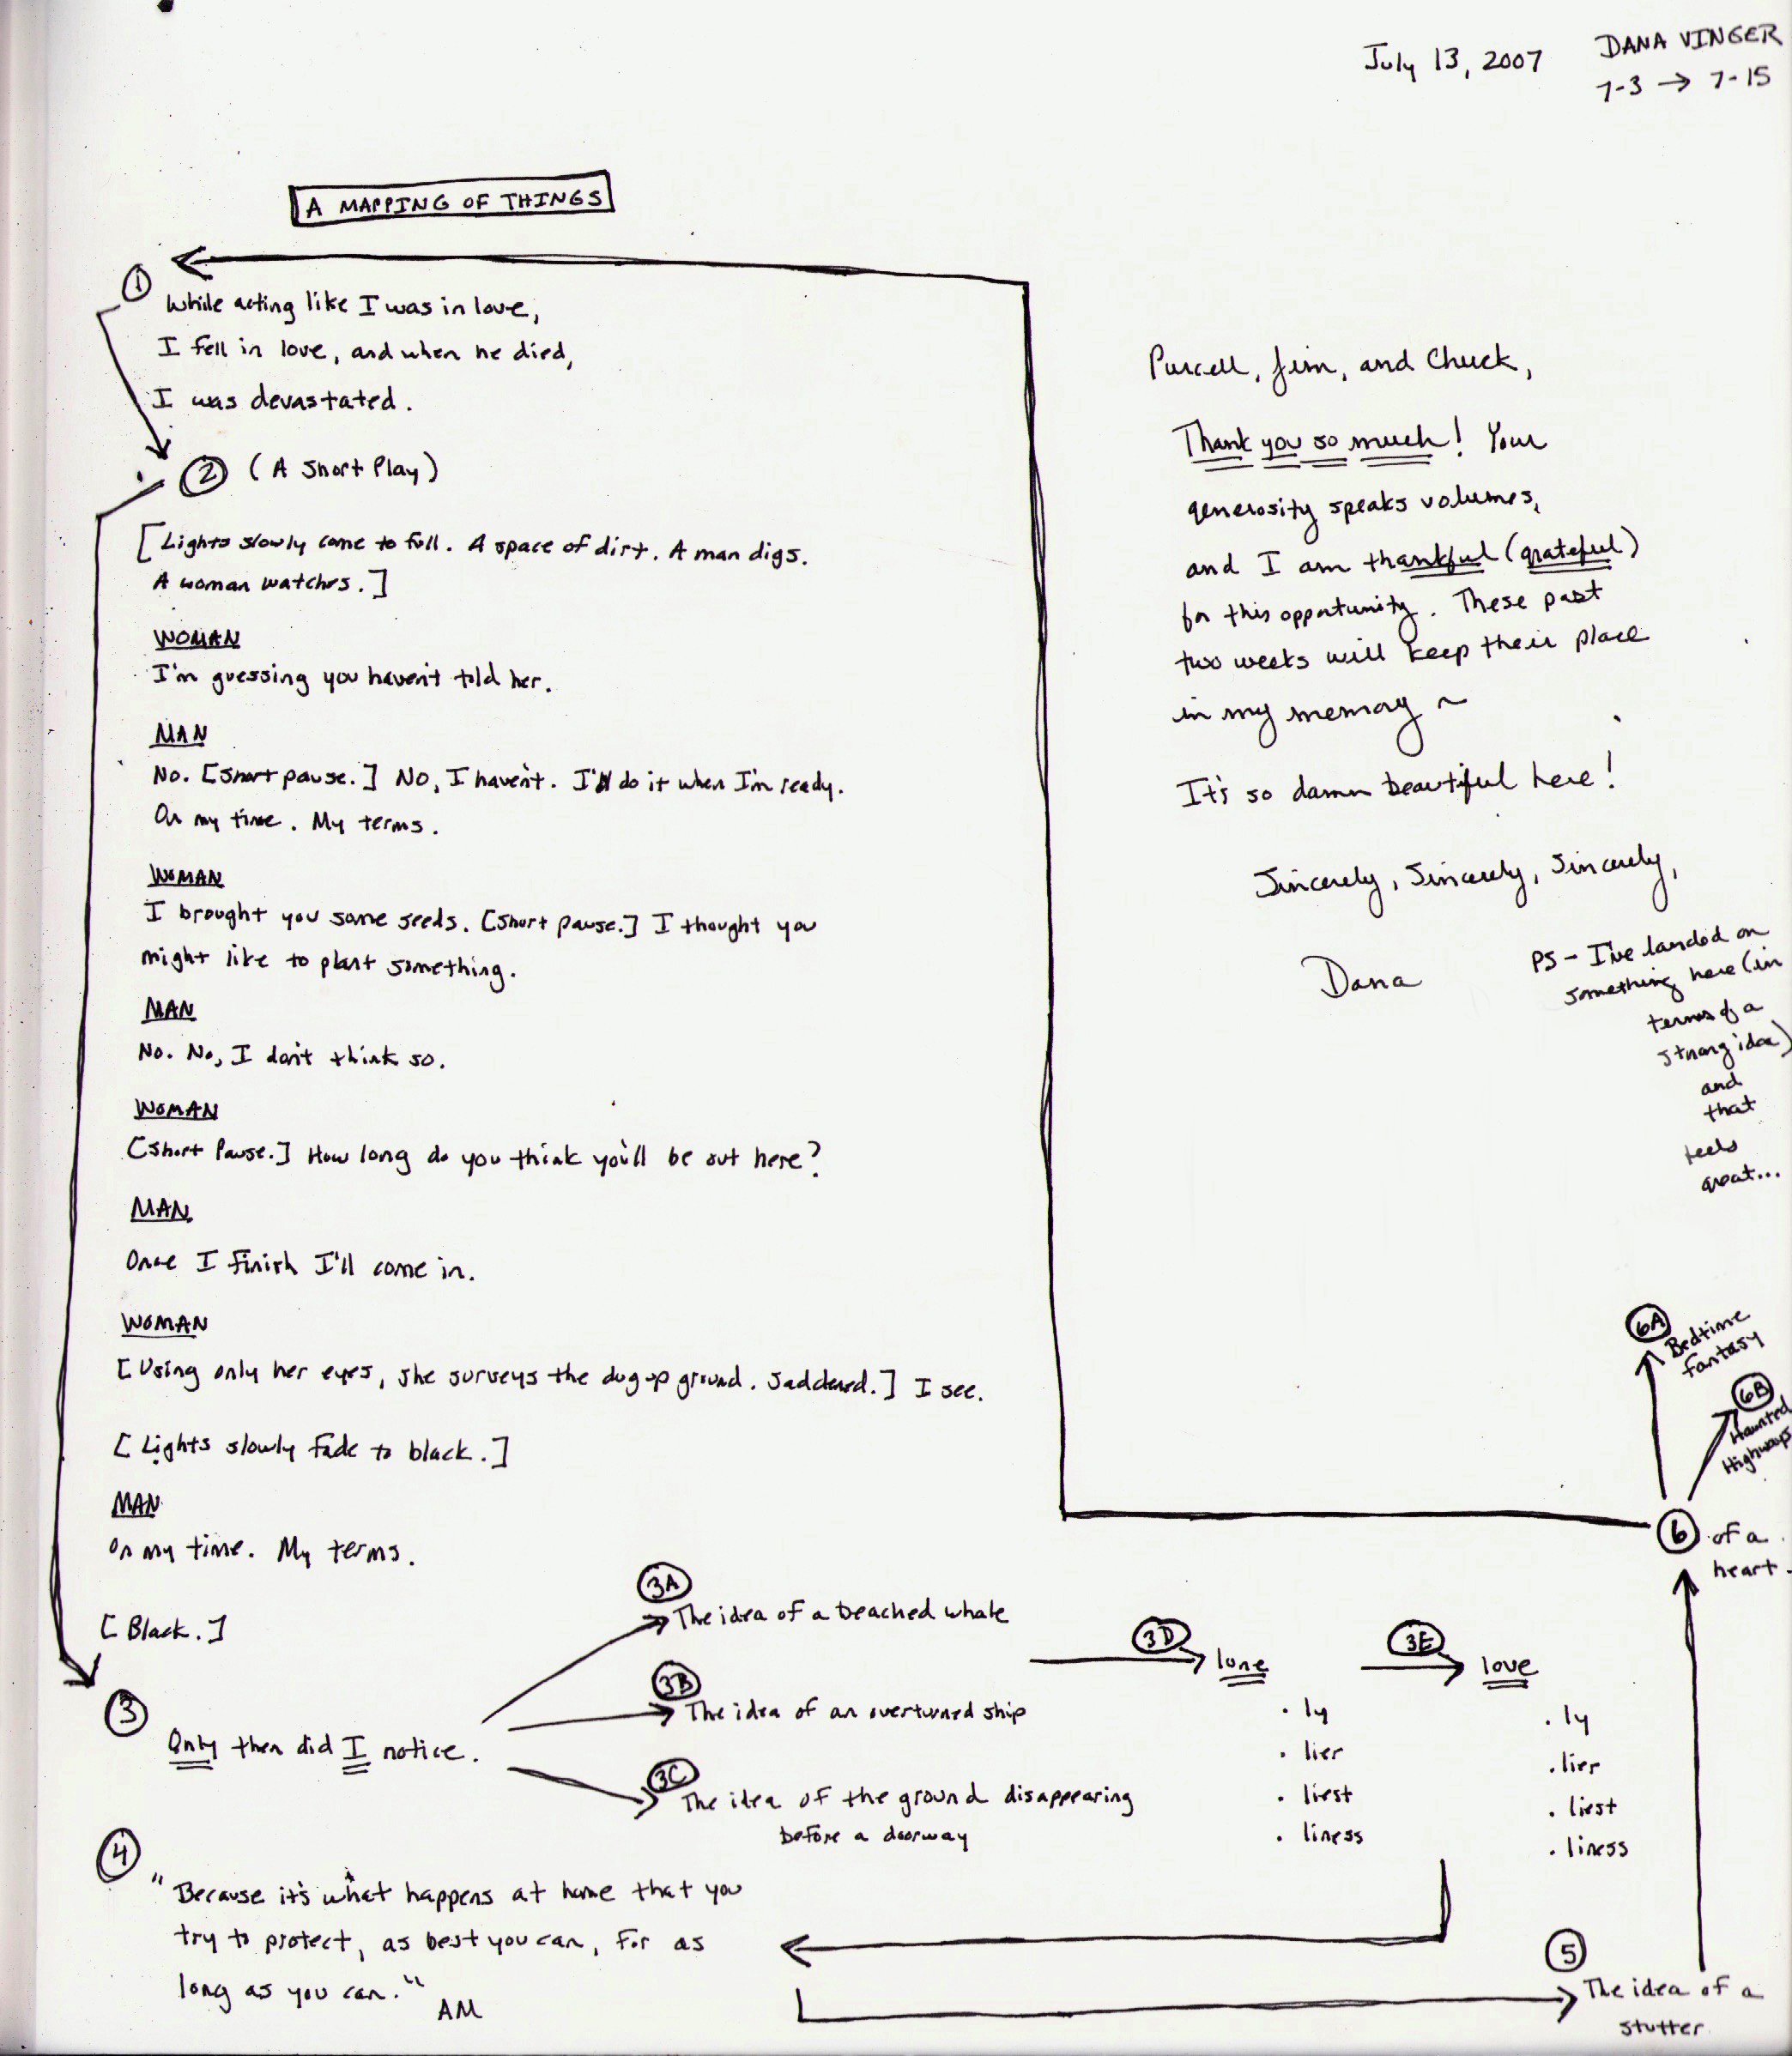 July 13, 2007
DANA VINGER
7-3 → 7-15
A MAPPING OF THINGS
1
While acting like I was in love,
I fell in love, and when he died,
I was devastated.
2 (A Short Play)
[Lights slowly come to full. A space of dirt. A man digs.
A woman watches.]
WOMAN
I'm guessing you haven't told her.
MAN
No. [Short pause.] No, I haven't. I'll do it when I'm ready.
On my time. My terms.
WOMAN
I brought you some seeds. [Short pause.] I thought you
might like to plant something.
MAN
No. No, I don't think so.
WOMAN
[Short Pause.] How long do you think you'll be out here?
MAN
Once I finish I'll come in.
WOMAN
[Using only her eyes, she surveys the dug up ground. Saddened.] I see.
[Lights slowly fade to black.]
MAN
On my time. My terms.
[Black.]
3
Only then did I notice.
3A
The idea of a beached whale
3B
The idea of an overturned ship
3C
The idea of the ground disappearing
before a doorway
3D
lone
· ly
· lier
· liest
· liness
3E
love
· ly
· lier
· liest
· liness
4
"Because it's what happens at home that you
try to protect, as best you can, for as
long as you can."
AM
5
The idea of a
stutter
6 of a
heart
6A
Bedtime
fantasy
6B
Haunted
Highways
Purcell, Jim, and Chuck,
Thank you so much! Your
generosity speaks volumes,
and I am thankful (grateful)
for this opportunity. These past
two weeks will keep their place
in my memory ~
It's so damn beautiful here!
Sincerely, Sincerely, Sincerely,
Dana
PS - I've landed on
something here (in
terms of a
strong idea)
and
that
feels
great...